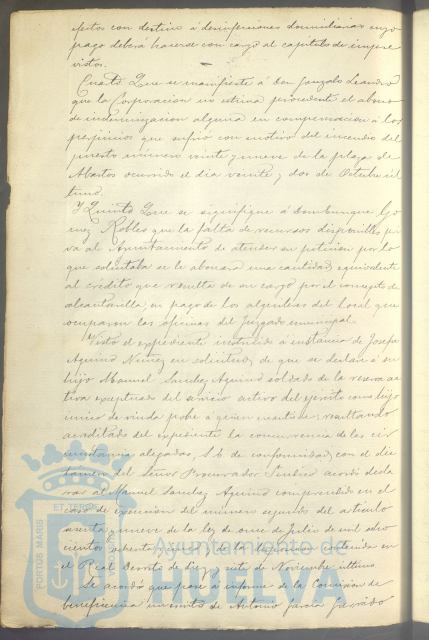 efectos con destino á desinfecciones domiciliarias cuyo
pago deberá hacerse con cargo al capítulo de impre
vistos.
Cuarto Que se manifieste á don Gonzalo Leandro
que la Corporacion no estima procedente el abono
de indemnizacion alguna en compensacion á los
perjuicios que sufrió con motivo del incendio del
puesto número veinte y nueve de la plaza de
Abastos ocurrido el dia veinte y dos de Octubre úl
timo.
Y Quinto Que se signifique á don Gó
mez Robles que la falta de recursos disponibles pri
va al Ayuntamiento de atender su peticion por lo
que solicitaba se le abonara una cantidad equivalente
al crédito que resulta de su cargo por el concepto de
alcantarilla, en pago de los alquileres del local que
ocuparon las oficinas del Juzgado municipal.
Visto el expediente instruido á instancia de Josefa
Aquino Nuñez en solicitud de que se declare á su
hijo Manuel Sanchez Aquino soldado de la reserva ac
tiva exceptuado del servicio activo del ejército como hijo
único de viuda pobre á quien mantiene: resultando
acreditado del expediente la concurrencia de las cir
cunstancias alegadas, S.E. de conformidad con el dic
tamen del Señor Procurador Síndico acordó decla
rar al Manuel Sanchez Aquino comprendido en el
caso de excepcion del número segundo del artículo
sesenta y nueve de la ley de once de Julio de mil ocho
cientos ochenta y cinco y de la disposicion contenida en
el Real Decreto de diez y siete de Noviembre último.
Se acordó que pase á informe de la Comision de
beneficencia un escrito de Antonio Garcia Garrido
PORTUS MARIS
ET TERRÆ
Ayuntamiento de
HUELVA